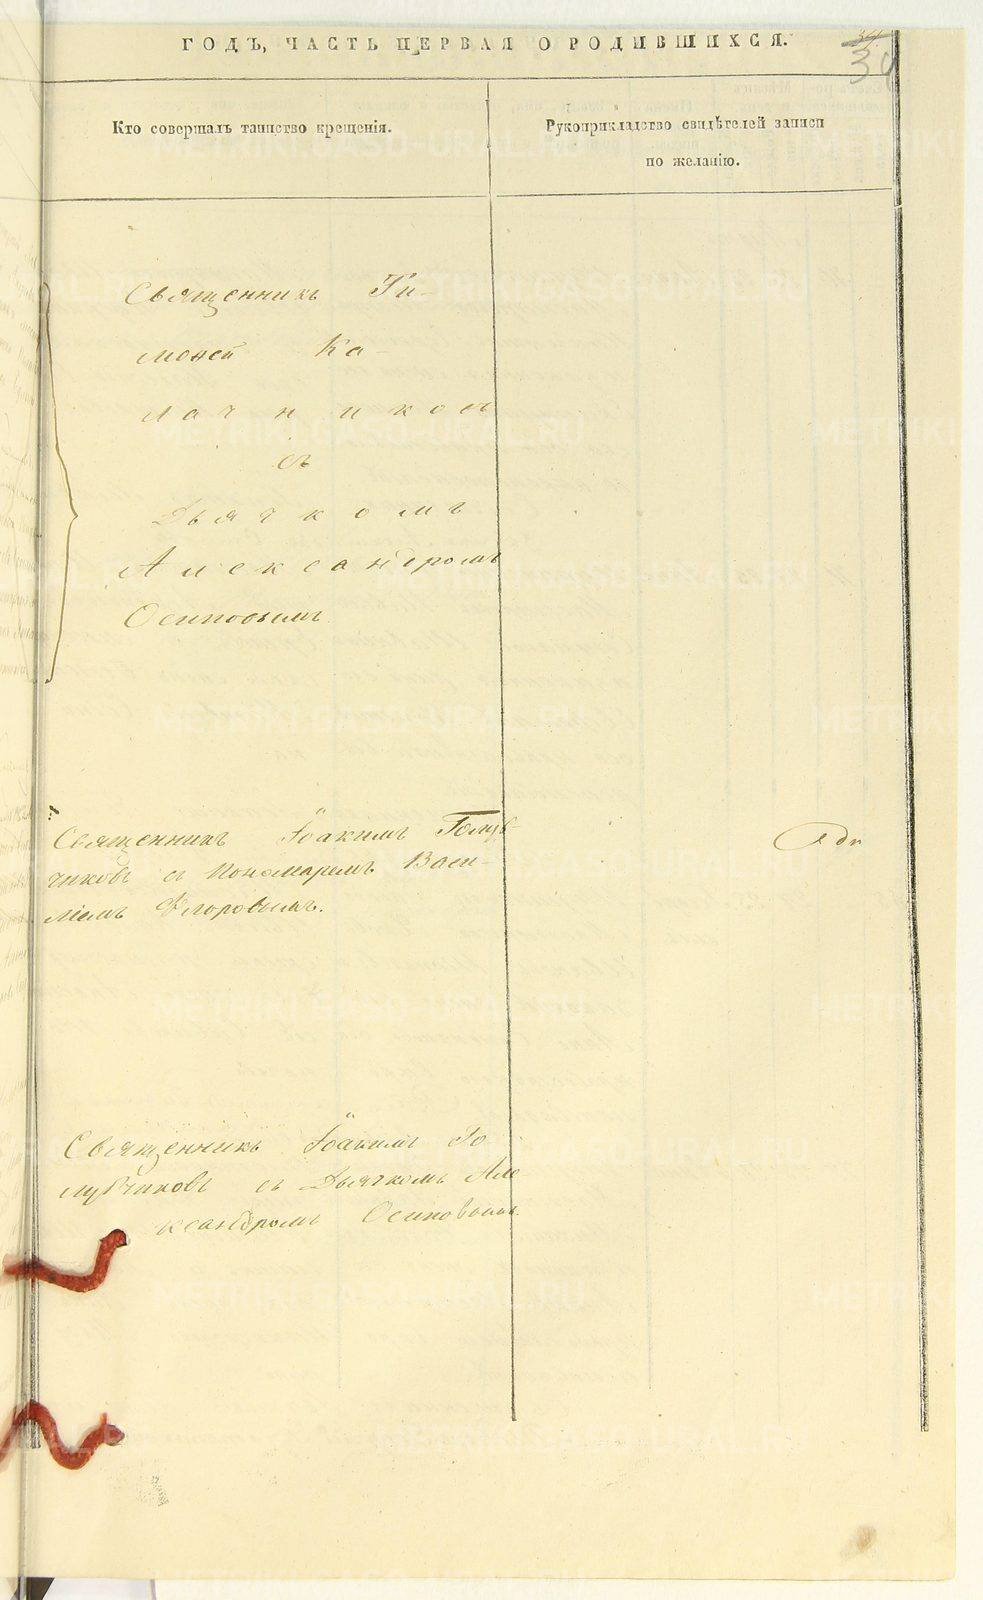 ГОДЪ, ЧАСТЬ ПЕРВАЯ О РОДИВШИХСЯ.
34
Кто совершалъ таинство крещенія.
Рукоприкладство свидѣтелей записи
по желанію.
Священникъ Ти-
моѳей Ка-
лачниковъ
съ
Дьячкомъ
Александромъ
Осиповымъ
Священникъ Іоакимъ Голуб-
чиковъ съ Пономаремъ Васи-
ліемъ Ѳлоровымъ.
Священникъ Іоакимъ Го
лубчиковъ съ Дьячкомъ Але
ксандромъ Осиповымъ
METRIKI.GASO-URAL.RU